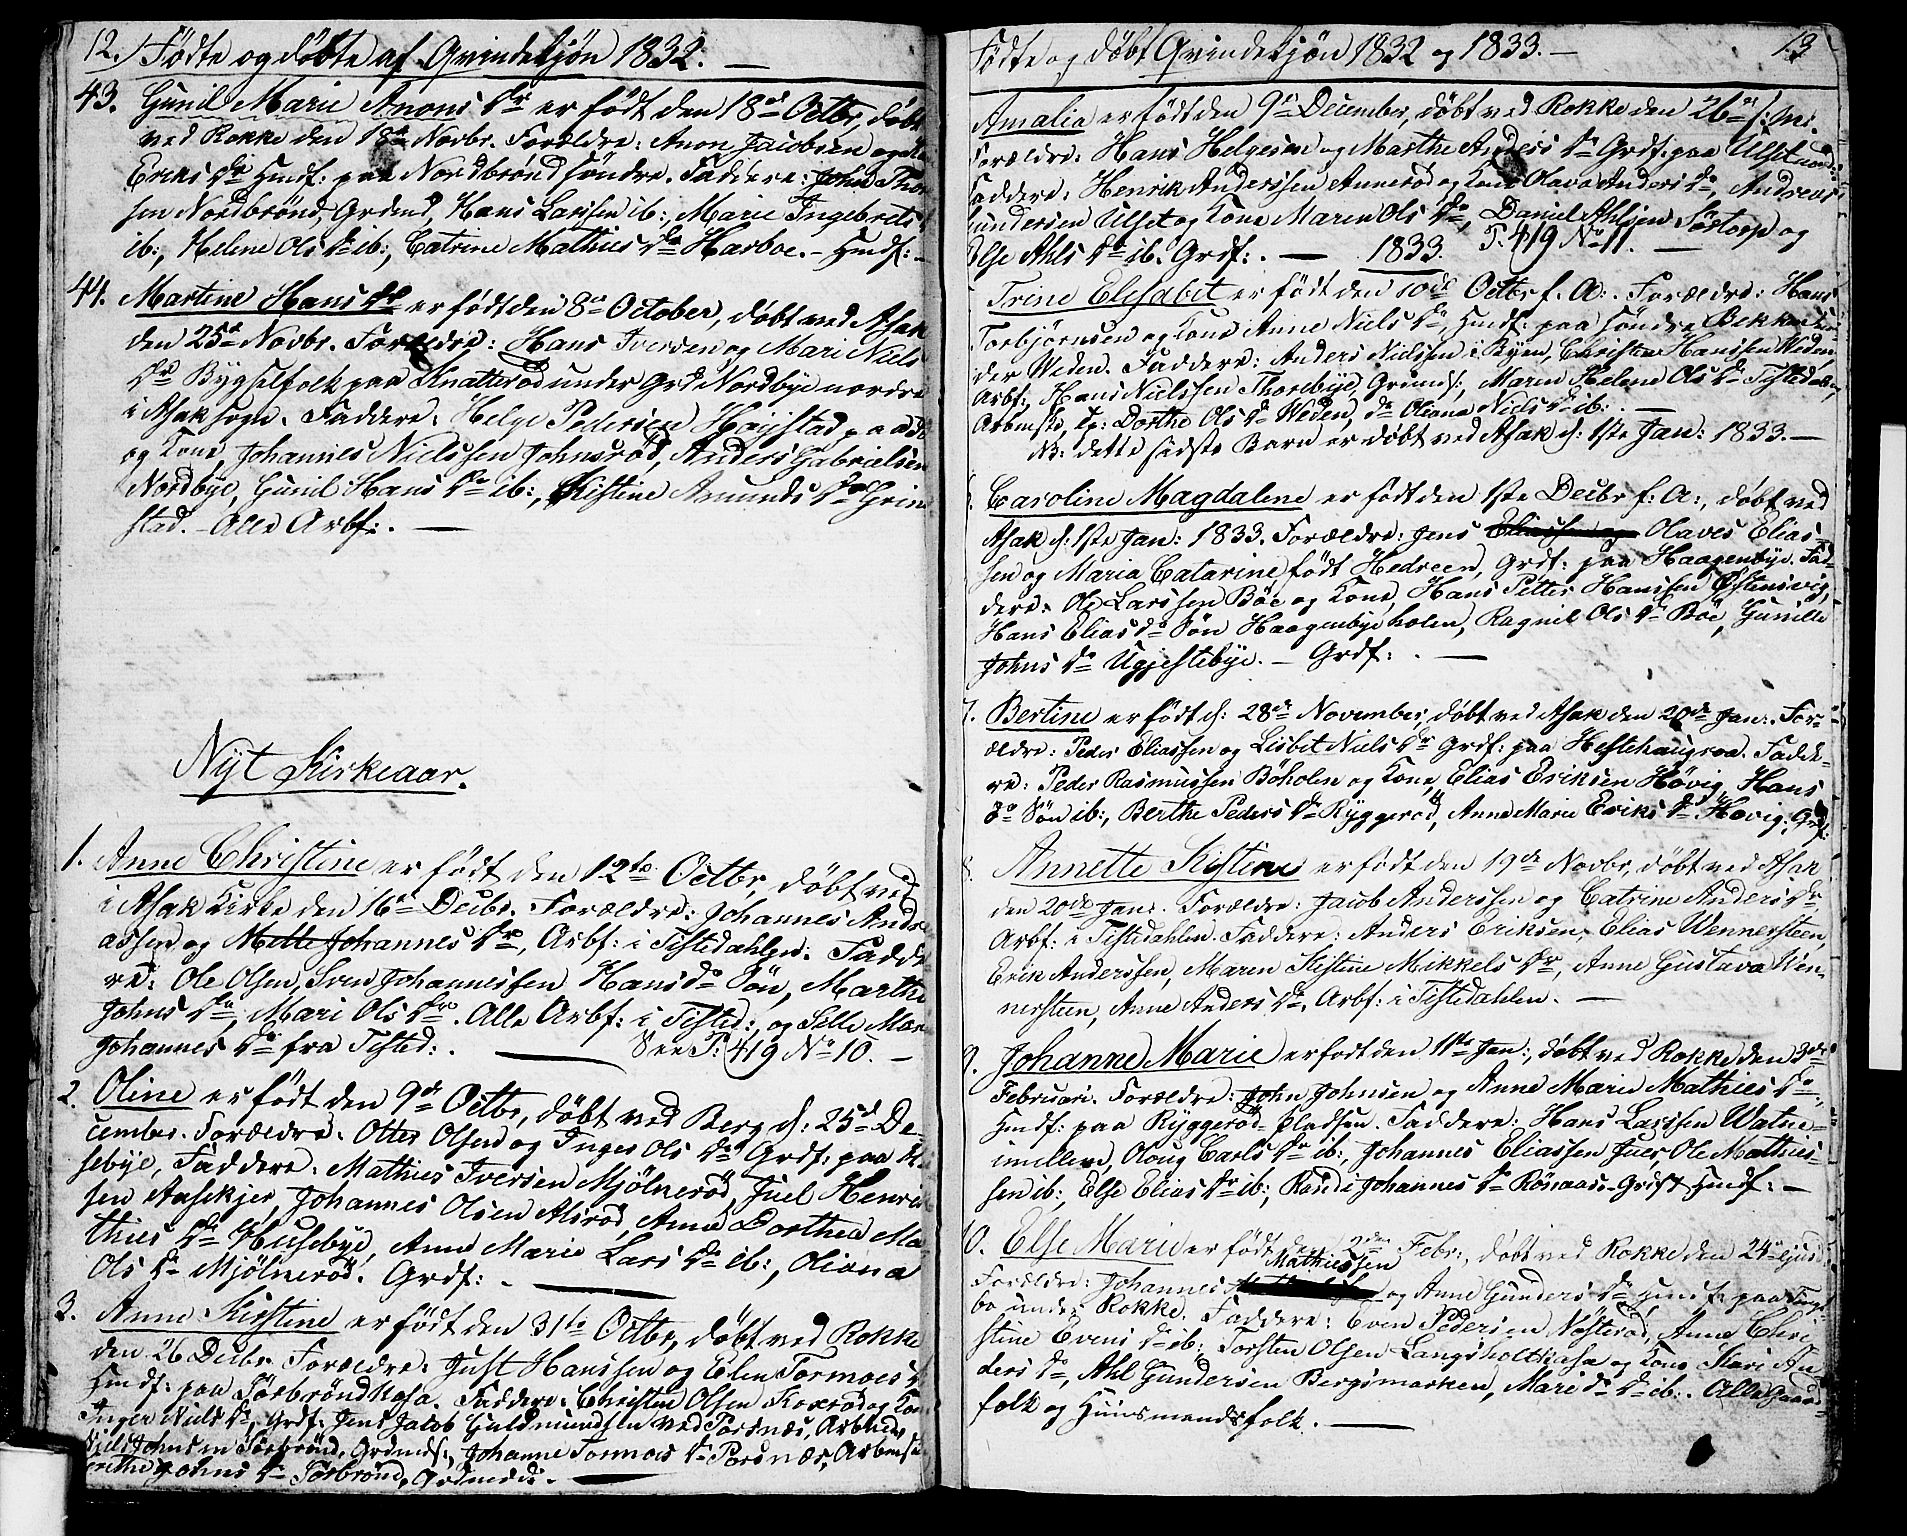 12.) Födte og döbte af Qvindekjön 1832. —
43. Gunil Marie Anons Dr er födt den 18de Octbr, döbt
ved Rokke den 18de Novbr. Forældre: Anon Jacobsen og
Eriks Dr Hmdf: paa Nordbrönd söndre. Faddere: John Thor
sen Nordbrönd, Grdmd, Hans Larssen ib:, Marie Ingebrets
ib:, Helene Ols Dr ib:, Catrine Mathies Dr Harboe. – Hmdf: –
44. Martine Hans Dr er födt den 8de October, döbt ved Asak
den 25de Novbr. Forældre: Hans Iversen og Mari Niels
Dr Bygselfolk paa Knatteröd under Grd Nordbye nordre
i Asak sogn. Faddere: Helge Pedersen
og Kone Johannes Nielssen Johnsröd, Anders Gabrielsen
Nordbye, Gunil Hans Dr ib:, Kistine Amunds Dr Grim
stad. – Alle Arbf: . —
Nyt Kirkeaar.
1. Anne Christine er födt den 12te Octbr, döbt ved
i Asak Kirke den 16de Decbr. Forældre: Johannes Andre
assen og Mette Johannes Dr, Arbf: i Tistedahlen. Fadde
re: Ole Olsen, Sven Johannessen Hans do Sön, Marthe
Johns Dr, Mari Ols Dr. Alle Arbf: i Tisted:, og Sille Mar
Johannes Dr fra Tisted: . — See P: 419 No 10. –
2. Oline er födt den 9de Octbr, döbt ved Berg d: 25de De-
cember. Forældre: Otter Olsen og Inger Ols Dr Grdf: paa Hu
sebye, Faddere: Mathies Iversen Mjölneröd, Juel Henrik
sen Aasekjer, Johannes Olsen Alsröd, Anne Dorthea Ma-
thies Dr Husebye, Anne Marie Lars Dr ib:, Oliana
Ols Dr Mjölneröd. Grdf: . —
3. Anne Kirstine er födt den 31te Octbr, döbt ved Rokke
den 26 Decbr. Forældre: Just Hanssen og Elen Tormoes D
Hmdf: paa Sörbröndkasa. Faddere: Christen Olsen Kaxröd og Kon
Inger Niels Dr, Grdf: Jens Jacob Guldmundsen ved Porsnæs, Arbmd,
Niels Johnsen Sörbrönd, Grdmds:, Johanne Tormoes Dr Porsnæs, Arbmds
Grethe Johns Dr Sörbrönd, Grdmds: . —
Födte og döbt Qvindekjön 1832 og 1833. — 13
Amalia er födt den 9de December, döbt ved Rokke den 26de s: M:
Forældre: Hans Helgesen og Marthe Anders Dr Grdf: paa Ulset
Faddere: Henrik Anderssen Anneröd og Kone Olava Anders Dr, Andreas
Gundersen Ulset og Kone Maren Ols Dr, Daniel Ahlsen Sörtorp og
Else Ahls Dr ib. Grdf: . — 1833. P. 419 No 11. —
Trine Elisabit er födt den 10de Octbr f. A: . Forældre: Hans
Torbjörnsen og Kone Anne Niels Dr, Hmdf: paa söndre Bekke un-
der Weden. Faddere: Anders Nielssen i Byen, Christen Hanssen Weden,
Arbf:, Hans Nielssen Thorebye, Grdmds:, Maren Helene Ols Dr Tistedalen,
Arbmds, Dorthe Ols Dr Weden, do Oliana Niels Dr ib: . —
NB: dette sidste Barn er döbt ved Asak d: 1ste Jan: 1833. —
Caroline Magdalene er födt den 1ste Decbr f: A:, döbt ved
Asak d: 1ste Jan: 1833. Forældre: Jens Olaves Elias-
sen og Maria Catarine födt Hedreen, Grdf: paa Haagenbye. Fad-
dere: Ole Larssen Böe og Kone, Hans Petter Hanssen Östensvig,
Hans Elias do Sön Haagenbyeholen, Ragnil Ols Dr Böe, Gunille
Johns Dr Ugjestebye. – Grdf: . —
7. Bertine er födt d: 28de November, döbt ved Asak den 20de Jan: . For-
ældre: Peder Eliassen og Lisbet Niels Dr Grdf: paa Hestehaugroa. Fadde-
re: Peder Rasmussen Böholen og Kone, Elias Eriksen Hövig, Hans
do Sön ib:, Berthe Peders Dr Ryggeröd, Anne Marie Eriks Dr Hövig: Grdf:
8. Annette Kistine er födt den 19de Novbr, döbt ved Asak
den 20de Jan: . Forældre: Jacob Anderssen og Catrine Anders Dr
Arbf: i Tistedahlen. Faddere: Anders Eriksen, Elias Wennersteen,
Erik Anderssen, Maren Kistine Mikkels Dr, Anne Gustava Wen-
nersteen, Anne Anders Dr, Arbf: i Tistedahlen. —
9. Johanne Marie er födt den 11te Jan:, döbt ved Rokke den 3de
Februari. Forældre: John Johnsen og Anne Marie Mathies Dr,
Hmdf: paa Ryggeröd-Pladsen. Faddere: Hans Larssen Watne-
imellem, Oloug Carls Dr ib:, Johannes Eliassen Juer, Ole Mathies-
sen ib:, Else Elias Dr ib:, Randi Johannes Dr Rönaas. Grdf: Hmdf: –
10. Else Marie er födt den 2den Febr:, döbt ved Rokke den 24de ejusd:
Mathiessen
Forældre: Johannes og Anne Gunders Dr Hmdf: paa
bo under Rokke. Faddere: Even Pedersen Nösteröd, Anne Chri
stine Evens Dr ib:, Torsten Olsen Langsholtkasa og Kone Kari An
ders Dr, Ahl Gundersen Bergsmarken, Mari do Dr ib: . Alle Gaard-
folk og Huusmandsfolk. —